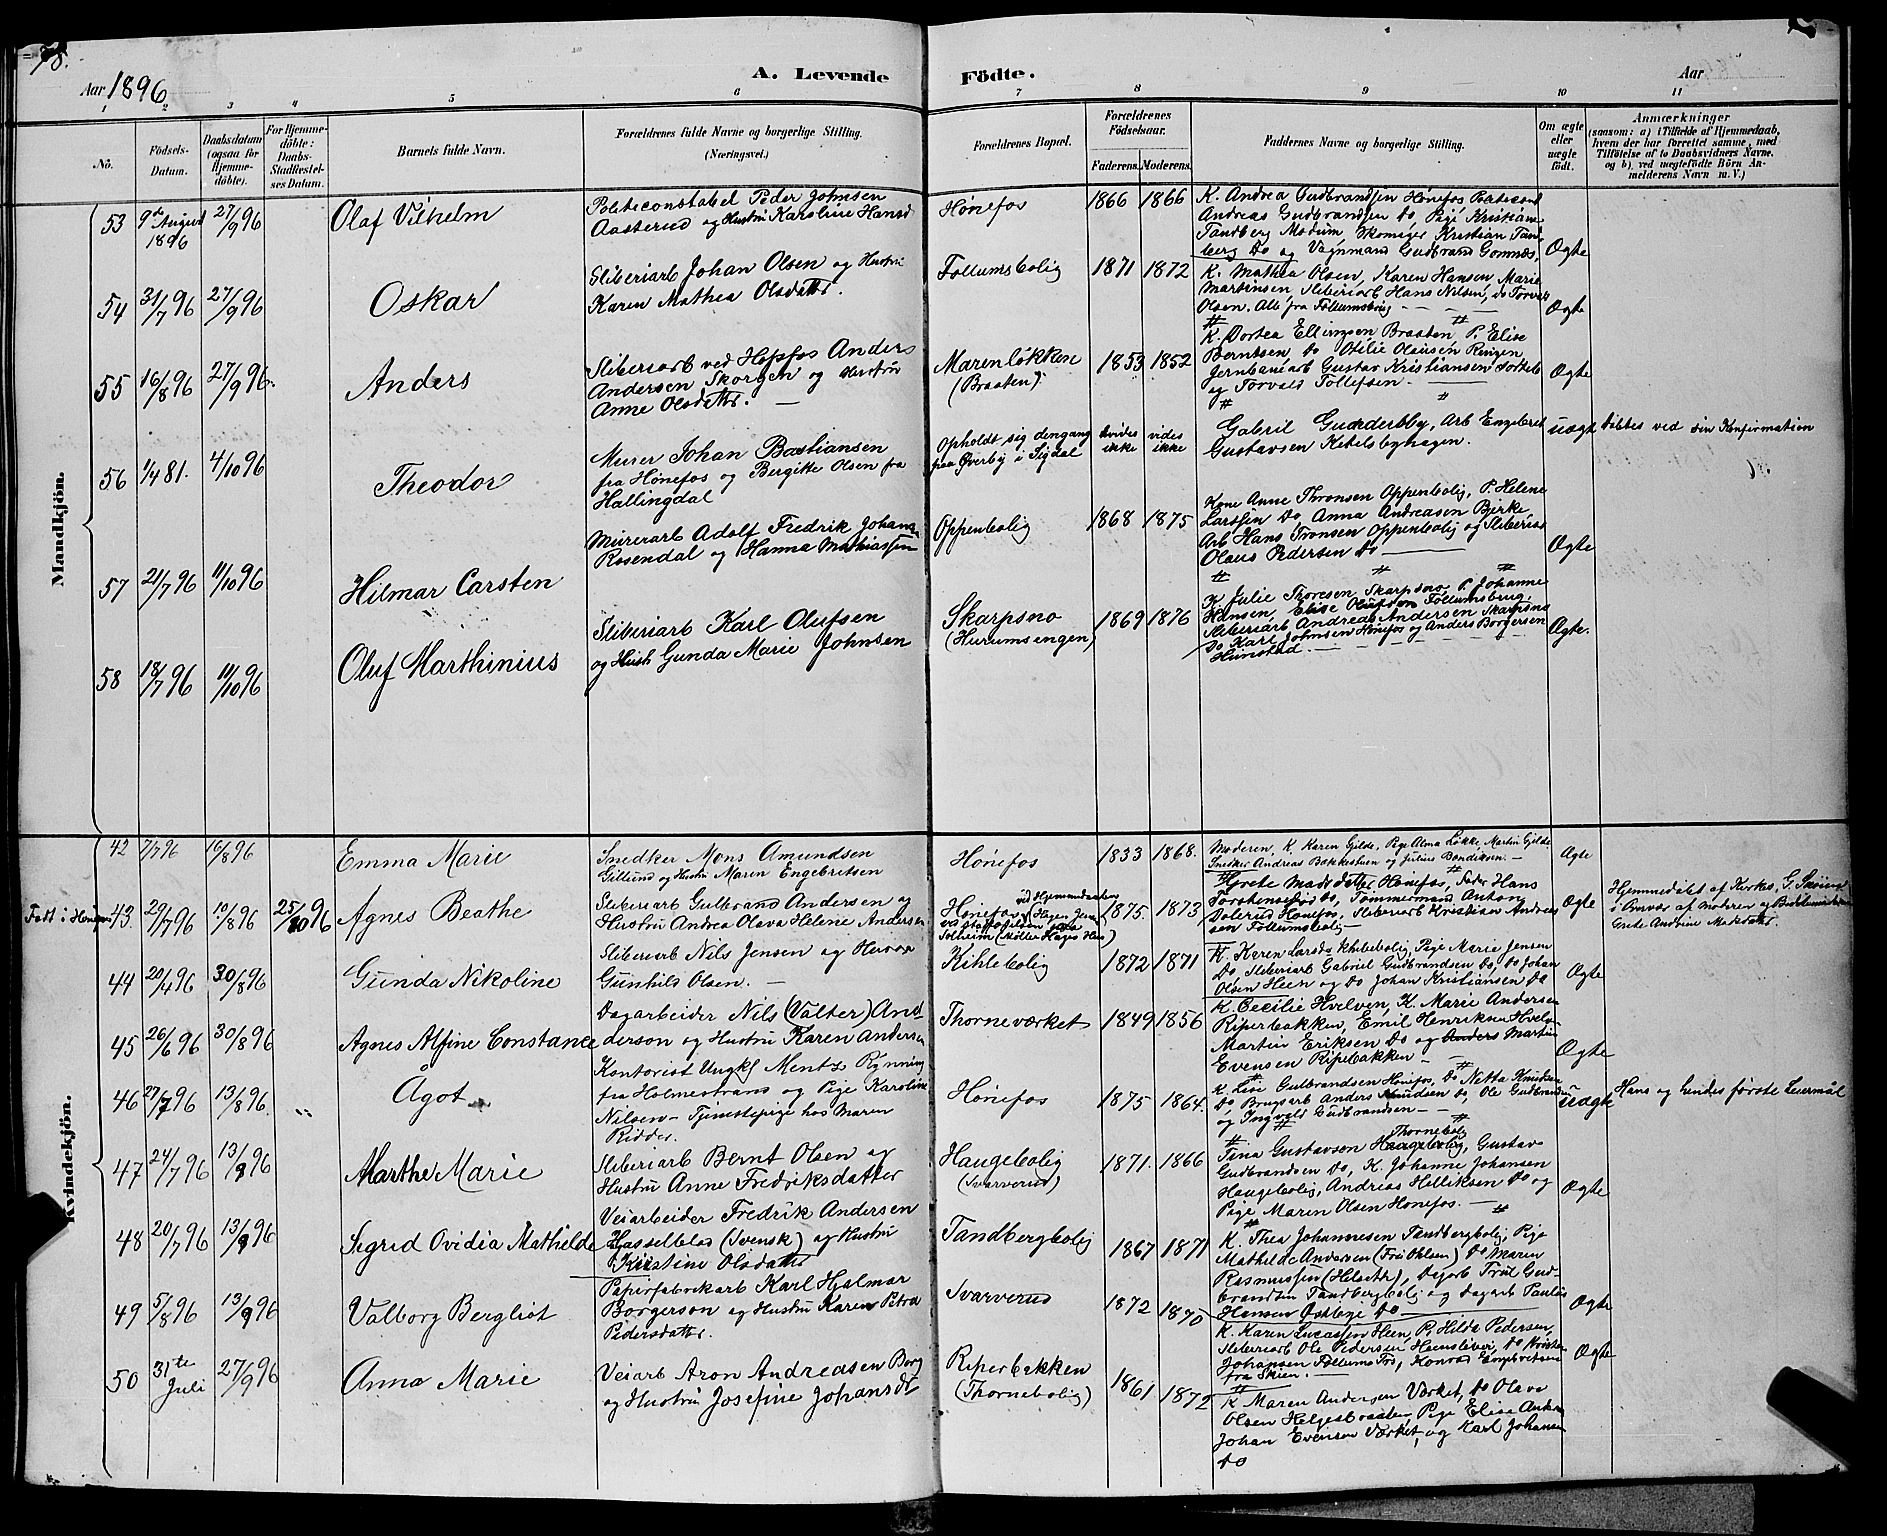 78.
Aar 1896.
A. Levende Födte.
Aar
1 2 3 4 5 6 7 8 9 10 11
No.
Födsels-Datum.
Daabsdatum (ogsaa for Hjemme-döbte).
For Hjemme-döbte: Daabs-Stadfæstel-ses Datum.
Barnets fulde Navn.
Forældrenes fulde Navne og borgerlige Stilling. (Næringsvei.)
Forældrenes Bopæl.
Forældrenes Födselsaar.
Faderens. Moderens.
Faddernes Navne og borgerlige Stilling.
Om ægte eller uægte født.
Anmærkninger
(saasom: a) i Tilfælde af Hjemmedaab, hvem der har forrettet samme, med Tilföielse af to Daabsvidners Navne, og b) ved uegtefödte Börn An-melderens Navn m. V.)
Mandkjön.
53 9de August 1896 27/9 96 Olaf Vilhelm
Politiconstabel Peder Johnsen
Aasterud og Hustru Karoline Hansd
Hønefos 1866 1866
K. Andrea Gudbrandsen Hønefos,
Andreas Gudbrandsen Do, Pige Kristiane
Tandberg Modum Skomager Kristian Tand-
berg Do og Vognmand Gudbrand Gomnæs,
Ægte
54 31/7 96 27/9 96 Oskar
Sliberiarb Johan Olsen og Hustru
Karen Mathea Olsdatter.
Follumsbolig 1871 1872
K. Mathea Olsen, Karen Hansen, Marie
Martinsen Sliberiarb Hans Nilsen, Do Torvald
Olsen. Alle fra Follumsbrug
Ægte
55 16/8 96 27/9 96. Anders
Sliberiarb ved Hofsfos Anders
Andersen Skorgen og Hustru
Anne Olsdatter.
Marenløkken (Braaten). 1853 1852
K. Dortea Ellingsen Braaten P. Elise
Berntsen, Do Otilie Olausen Ringen
Jernbanearb Gustav Kristiansen
og Torvald Tollefsen.
Ægte
56 1/4 81. 4/10 96 Theodor
Murer Johan Bastiansen
fra Hønefos og Bergitte Olsen fra
Hallingdal
Opholdt sig dengang
paa Øverby i Sigdal
vides ikke vides ikke
Gabriel Gudderby, Arb Engebret
Gustavsen Ketelsbyhagen.
uægt
Døbtes ved sin Konfirmation
57 21/7 96 11/10 96 Hilmar Carsten
Murerarb Adolf Fredrik Johans
Rosendal og Hanna Mathiassen
Oppenbolig 1868 1875
Kone Anne Thronsen Oppenbolig, P. Helene
Larssen Do Anna Andreasen Bjerke,
Arb Hans Tronsen Oppenbolig og Sliberiarb
Olaus Pedersen Do
Ægte
58 18/7 96 11/10 96 Oluf Marthinius
Sliberiarb Karl Olufsen
og Hust Gunda Marie Johnsen
Skarpsno (Hurumsengen) 1869 1876
K Julie Thoresen Skarpsno, P. Johanne
Hansen, Elise Olufsen Follumsbrug,
Sliberiarb Andreas Andersen Skarpsno
Do Karl Johnsen Hønefos og Anders Borgersen
Hunstad.
Ægte.
Kvindekjön.
42 7/7 96 16/8 96 Emma Marie
Snedker Mons Amundsen
Gillund og Hustru Maren Engebritsen
Hønefos 1833 1868.
Moderen, K. Karen Gjilde, Pige Alma Løkke, Martin Gjilde
Snedker Andreas Bakkestuen og Julius Bendiksen.
Ægte
Født i Hønefos
43. 29/7 96 10/8 96 25/10 96 Agnes Beathe
Sliberiarb Gulbrand Andersen og
Hustru Andrea Olava Helene Andersen
Hønefos, ved Hjemmedaaben
Solheim (Møller Hages Hus)
1875. 1873
Grete Madsdatter Hønefos, Fader Hans
Torstensen Do, Tømmermand Antony
Dolerud Hønefos, Sliberiarb Kristian Anders
son Follumsbolig
Ægte
Hjemmedøbt af Kirkes. G. Smørud
i Nærvær af Moderen og
Grete Andrine Madsdatter.
44 20/4 96 30/8 96 Gunda Nikoline
Sliberiarb Nils Jensen og Hustru
Gunhild Olsen.
Kihlebolig 1872 1871
K. Karen Larsds Kihlebolig, Pige Marie Jensen
Do, Sliberiarb Gabriel Gudbrandsen Do, Do Johan
Olsen Heen og Do Johan Kristiansen Do
Ægte
45 26/6 96 30/8 96 Agnes Alfine Constance
Dagarbeider Nils (Valter) And-
derson og Hustru Karen Andersen
Thorneværket 1849 1856
K. Cecilie Hvelven, K. Marie Andersen
Riperbakken, Emil Henriksen Hvelv
Martin Eriksen Do og Anders Martin
Evensen Ripebakken
Ægte
46 27/7 96 13/8 96. „ Ågot
Kontorist Ungkl Mentz Rynning
fra Holmestrand og Pige Karoline
Nilsen - Tjenstepige hos Maren
Ridder.
Hønefos 1875 1864.
K. Lise Gulbrandsen Hønefos, Do Netta Knudsen
Do Brugsarb Anders Knudsen Do, Ole Gudbrandsen
og Ingvald Gudbrandsen
uægte
Hans og hendes første Leiermål
47 24/7 96 13/9 96 Marthe Marie
Sliberiarb Bernt Olsen og
Hustru Anne Fredriksdatter
Haugebolig (Svarverud) 1871. 1866
Thornebolig
Tina Gustavson Haugebolig, Gustav
Gudbrandsen Do, K. Johanne Johansen
Haugebolig, Andreas Helliksen Do og
Pige Maren Olsen Hønefos.
Ægte
48 20/7 96 13/9 96 Sigrid Ovidia Mathilde
Veiarbeider Fredrik Andersen
Hasselblad (Svensk) og Hustru
Kristine Olsdatter
Tandbergbolig 1867 1871
K. Thea Johannesen Tandbergbolig, Pige
Mathilde Andersen (Fru Ohlsen) Do Maren
Rasmussen (Helseth), Dagarb Trul Gud-
brandsen Tandbergbolig og dagarb Paul
Hansen Do
Ægte
49 5/8 96 13/9 96 Valborg Bergliot
Papirfabrikarb Karl Hjalmar
Borgerson og Hustru Karen Petra
Pedersdatter.
Svarverud 1872 1870
K. Karen Lucassen Heen, P. Hilda Pedersen,
Sliberiarb Ole Pedersen Heensliberi, Do Kristen
Johansen Follums Træ, Konrad Emfretsen
fra Skien.
Ægte
50 31te Juli 27/9 96 Anna Marie
Veiarb Aron Andreasen Borg
og Hustru Josefine Johansdt
Riperbakken (Thornebolig) 1861 1872
K Maren Andersen Værket, Do Olava
Olsen Helgesbraaten Pige Elise
Johan Evensen Værket, og Karl Johansen
Do